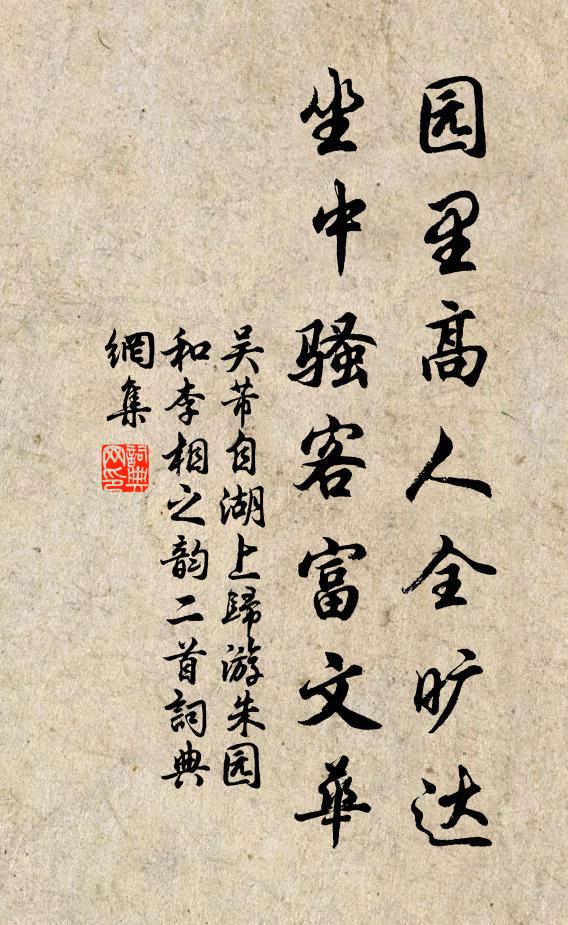 园里高人全旷达
坐中骚客富文华
吴芾自湖上歸游朱园
和李相之韵二首詞典
網集
詞典
网印